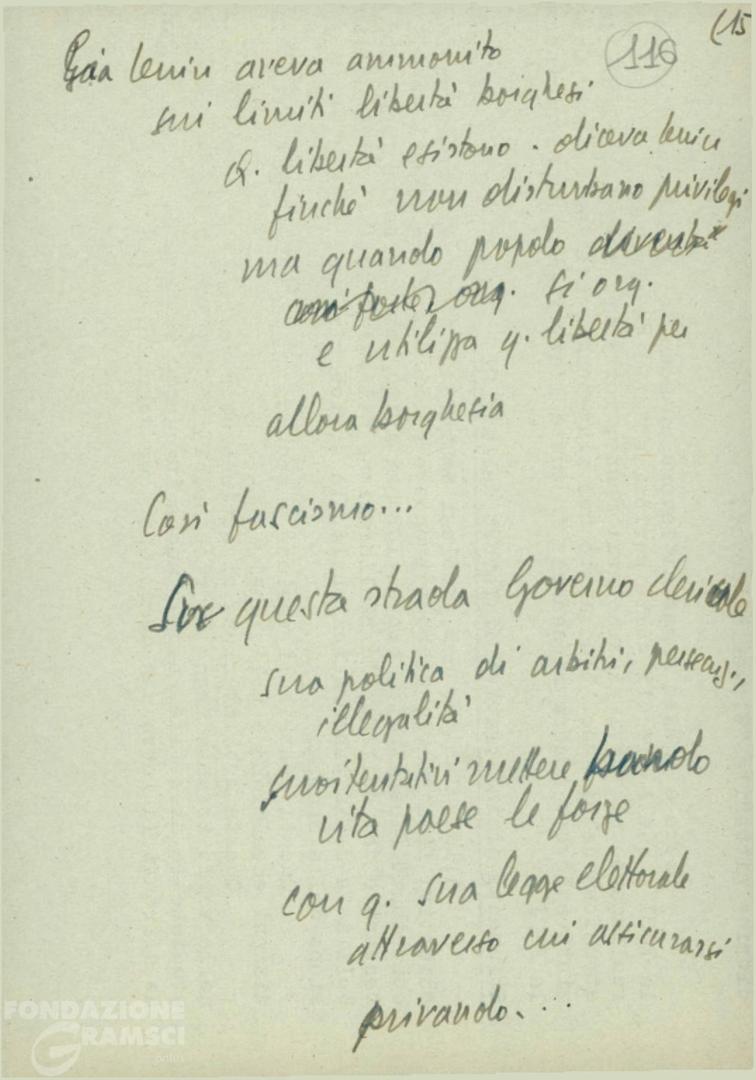 (15
116
Già Lenin aveva ammonito
sui limiti libertà borghesi
Q. libertà esistono. diceva Lenin
finchè non disturbano privilegi
ma quando popolo diventa
si org.
e utilizza q. libertà per
allora borghesia
Così fascismo...
Su questa strada Governo clericale
sua politica di arbitri, perseg.,
illegalità
suoi tentativi mettere bando
vita paese le forze
con q. sua legge elettorale
attraverso cui assicurarsi
privando...
FONDAZIONE
GRAMSCI
onlus